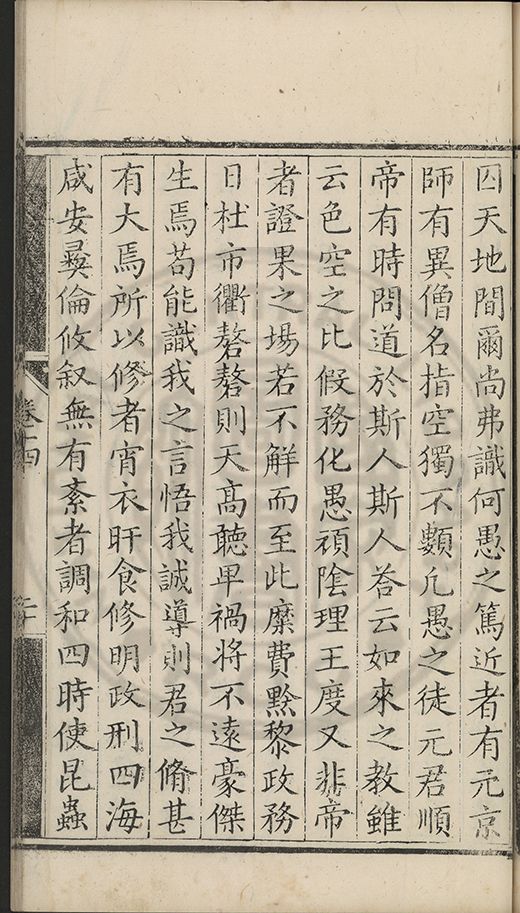 囚天地間爾尚弗識何愚之篤近者有元京
師有異僧名指空獨不類凢愚之徒元君順
帝有時問道於斯人斯人荅云如來之教雖
云色空之比假務化愚湏隂理王度又非帝
者證果之場若不解而至此縻費黔黎政務
日杜市衢嗸嗸則天髙聽卑禍將不遠豪傑
生焉茍能識我之言悟我誠導則君之脩甚
有大焉所以修者宵衣旰食修明政刑四海
咸安彛倫攸叙無有紊者調和四時使昆蟲
卷十四
二十